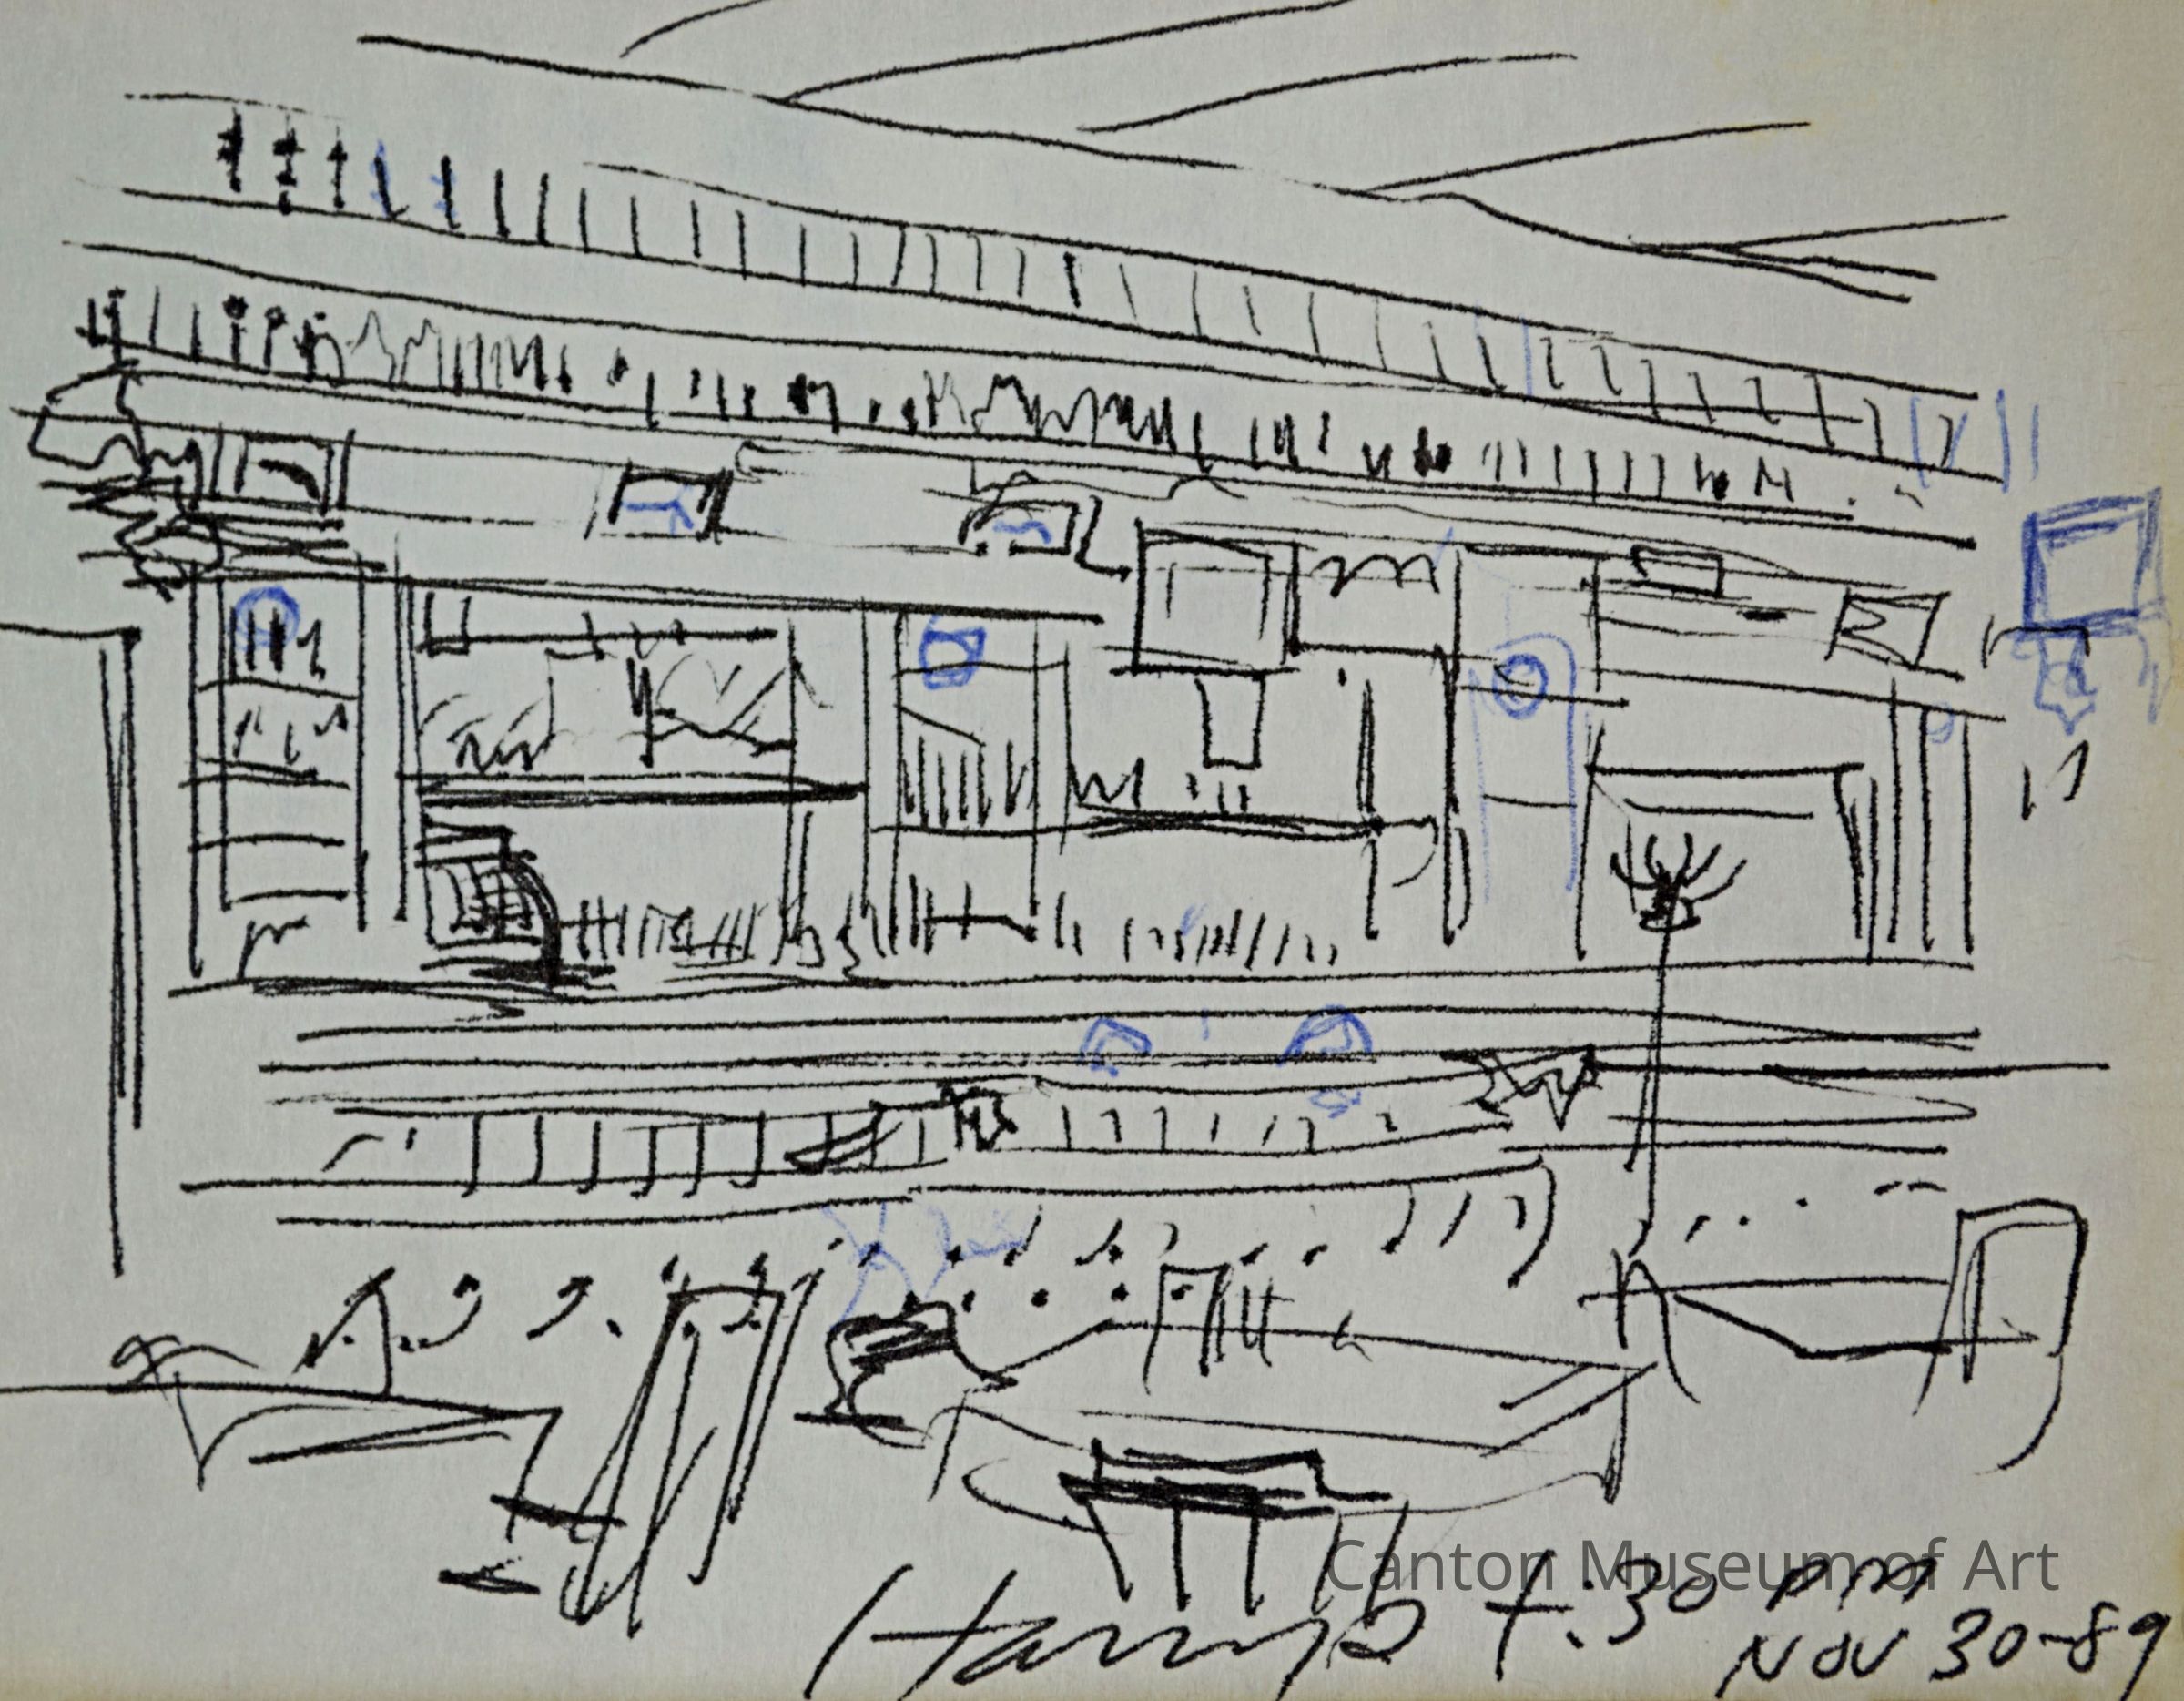 Canton Museum of Art
7:30 PM
NOV 30-89